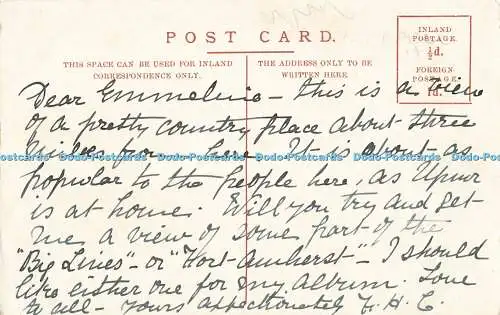 POST CARD.
THIS SPACE CAN BE USED FOR INLAND
CORRESPONDENCE ONLY.
THE ADDRESS ONLY TO BE
WRITTEN HERE
INLAND
POSTAGE.
½d.
FOREIGN
POSTAGE
1d.
Dear Emmeline - This is a view
of a pretty country place about three
miles from here. It is about as
Dodo-Postcards Dodo-Postcards Dodo-Postcards Dodo-Postcards Dodo-Postcards Dodo-Postcards
popular to the people here, as Upnor
is at home. Will you try and get
me a view of some part of the
"Big Lines" - or "Fort Amherst" - I should
like either one for my album. Love
to all - yours affectionately F. H. C.